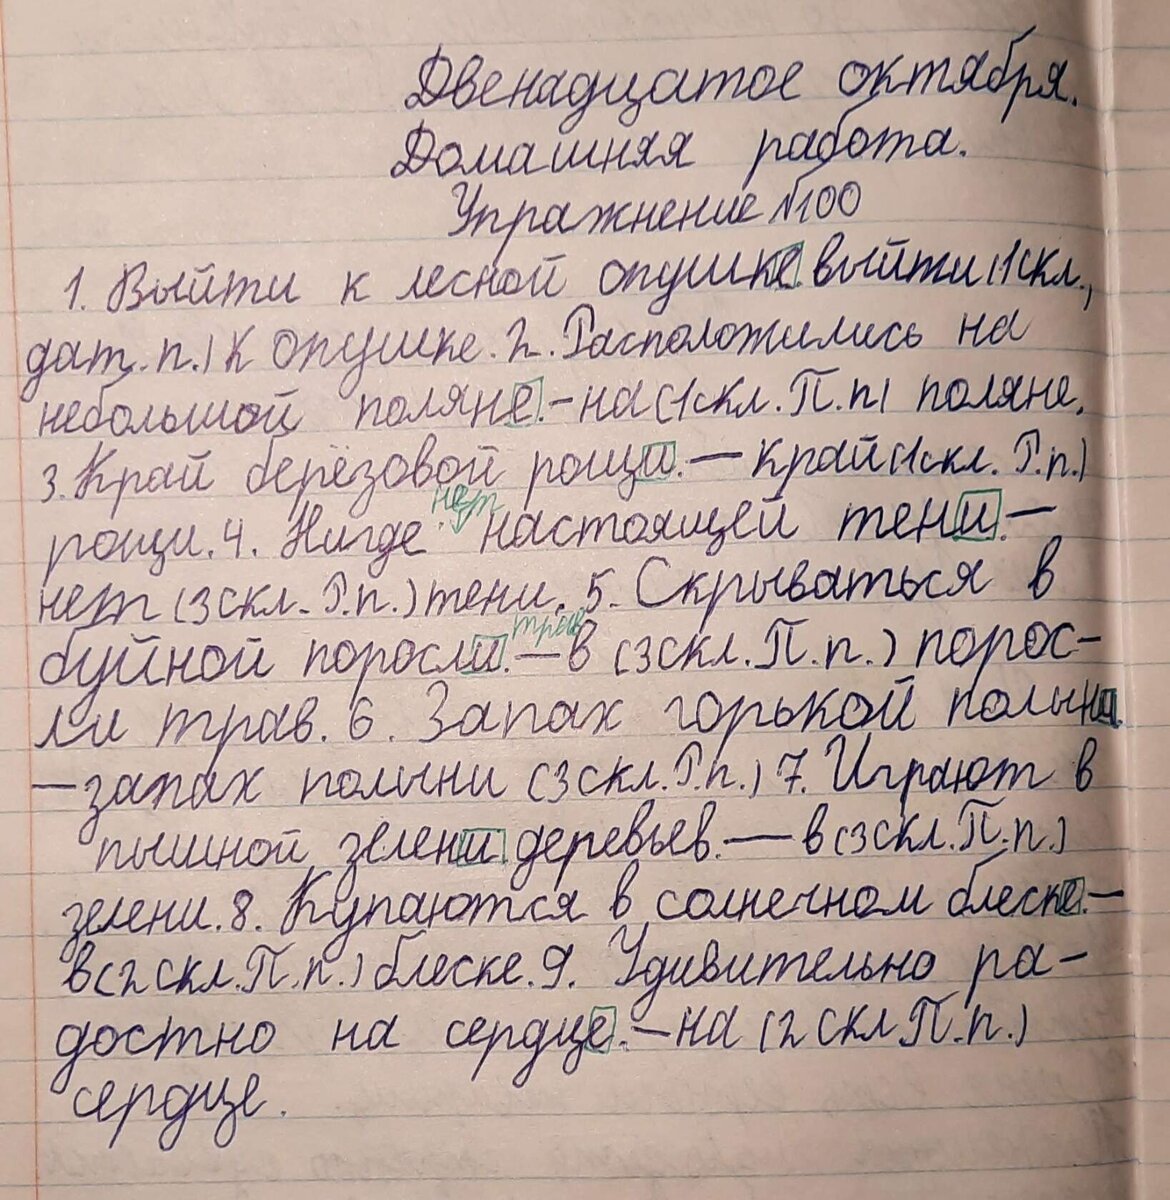 Двенадцатое октября.
Домашняя работа.
Упражнение №100
1. Выйти к лесной опушке выйти (1скл.,
дат. п.) к опушке. 2. Расположились на
небольшой поляне. - на (1скл. П.п) поляне.
3. Край берёзовой рощи. — край (1скл. Р.п.)
нет
рощи. 4. Нигде настоящей тени. —
нет (3скл. Р.п.) тени. 5. Скрываться в
трав
буйной поросли. — в (3скл. П.п.) порос-
ли трав. 6. Запах горькой полыни
— запах полыни (3скл. Р.п.) 7. Играют в
пышной зелени деревьев. — в (3скл. П.п.)
зелени. 8. Купаются в солнечном блеске. —
в (2скл. П.п.) блеске. 9. Удивительно ра-
достно на сердце. — на (2скл П.п.)
сердце.